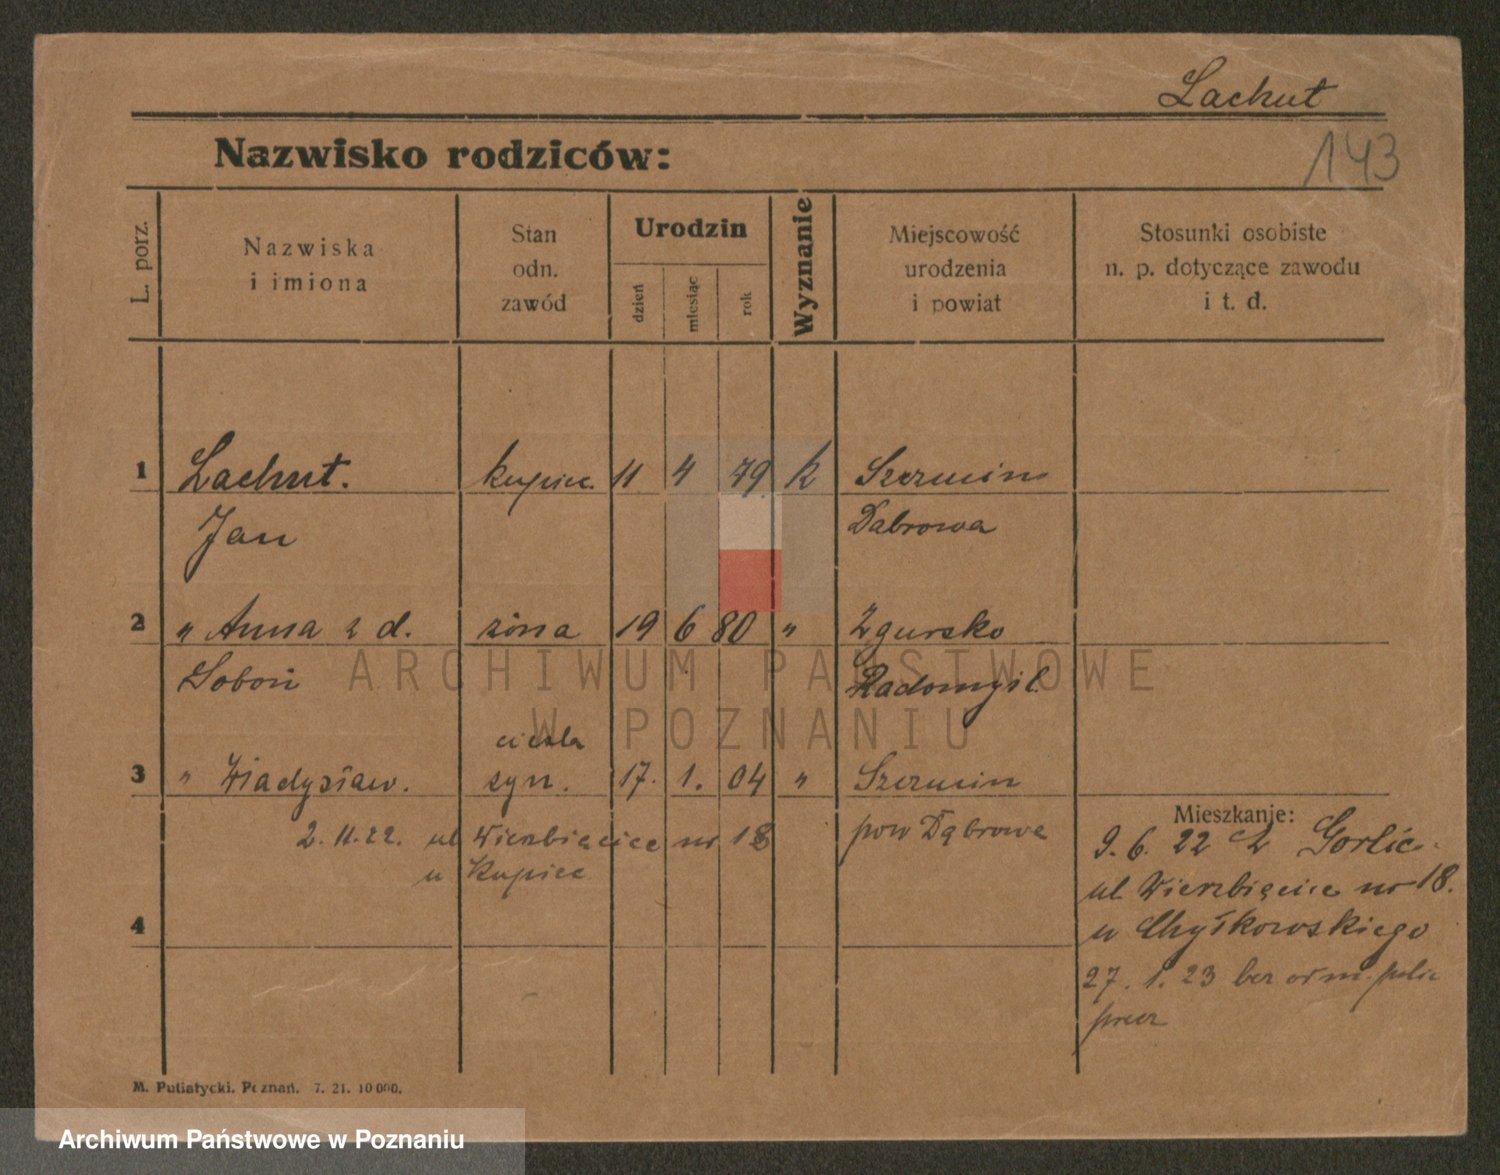 Lachut
143
Nazwisko rodziców:
L. porz.
Nazwiska
i imiona
Stan
odn.
zawód
Urodzin
dzień
miesiąc
rok
Wyznanie
Miejscowość
urodzenia
i powiat
Stosunki osobiste
n. p. dotyczące zawodu
i t. d.
1 Lachut. kupiec. 11 4 79. k Szczucin
Jan Dabrowa
2 " Anna z d. żona 19 6 80 " Zgursko
Soboń Radomyśl
cieśla
3 " Władysław. syn. 17. 1. 04 " Szczucin
2.11.22. ul Wierzbięcice nr 18 pow Dąbrowa
u Kupiec
4
Mieszkanie:
9. 6. 22 z Gorlic
ul Wierzbięcice nr 18.
u Chyłkowskiego
27. 1. 23 bez
M. Putiatycki. Poznań. 7. 21. 10 000.
ARCHIWUM PAŃSTWOWE
W POZNANIU
Archiwum Państwowe w Poznaniu